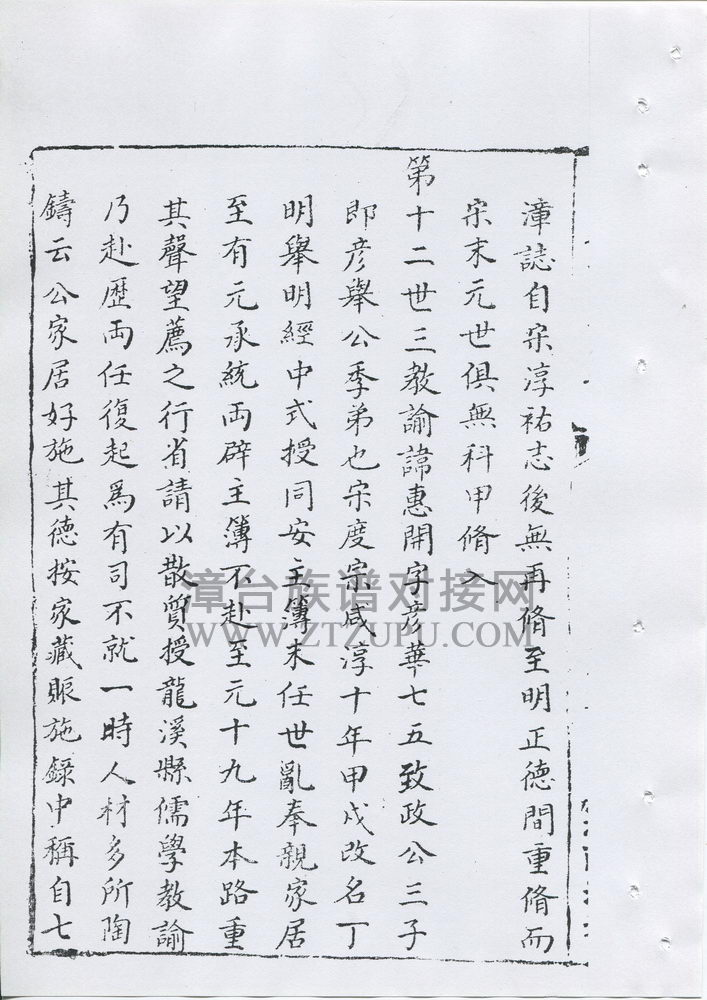 漳誌自宋淳祐志後無再脩至明正德間重脩而
宋末元世俱無科甲脩入
第十二世三教諭諱惠開字彥華七五致政公三子
即彥舉公季弟也宋度宗咸淳十年甲戌改名丁
明舉明經中式授同安主簿未任世亂奉親家居
至有元承統両辟主簿不赴至元十九年本路重
其聲望薦之行省請以散質授龍溪縣儒學教諭
乃赴歷両任復起爲有司不就一時人材多所陶
鑄云公家居好施其德按家藏賑施錄中稱自七
漳台族谱对接网
WWW.ZTZUPU.COM